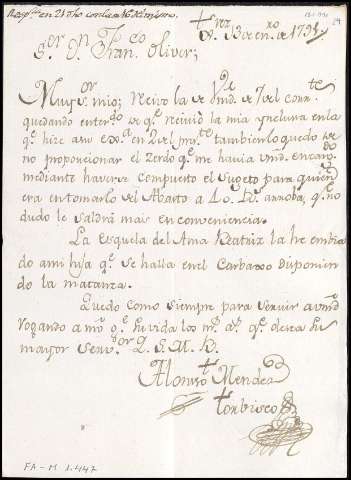 Resp.ta en 21 dho
Xrez 13 en.ro de 1794
S.or D.n Fran.co Oliver;
Muy S.or mio; Recivo la de Vmd. de 7 del corr.te
quedando enterdo de q.e recivió la mia ynclusa en la
q.e hize a su ex.a en 2 del m.te tambien lo quedo de
no proporcionar el zerdo q.e me havia Vmd. encar.do
mediante haverse compuesto el sugeto para quien
era en tomarlo del Abasto a 40 R.s arroba, q.e no
dudo le saldrá mas en conveniencia.
La Esquela del Ama Beatriz la he embia
do a mi hija q.e se halla en el Carbaxo disponien
do la matanza.
Quedo como siempre para servir a vmd
rogando a n.ro q.e su vida los m.s a.s q.e desea su
mayor serv.or Q. S. M. B.
Alonso Mendez
Tonbisco
FA-M 1.447